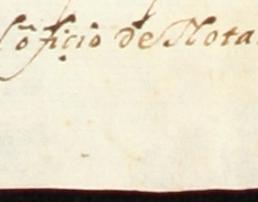 Cõ oficio de Nota